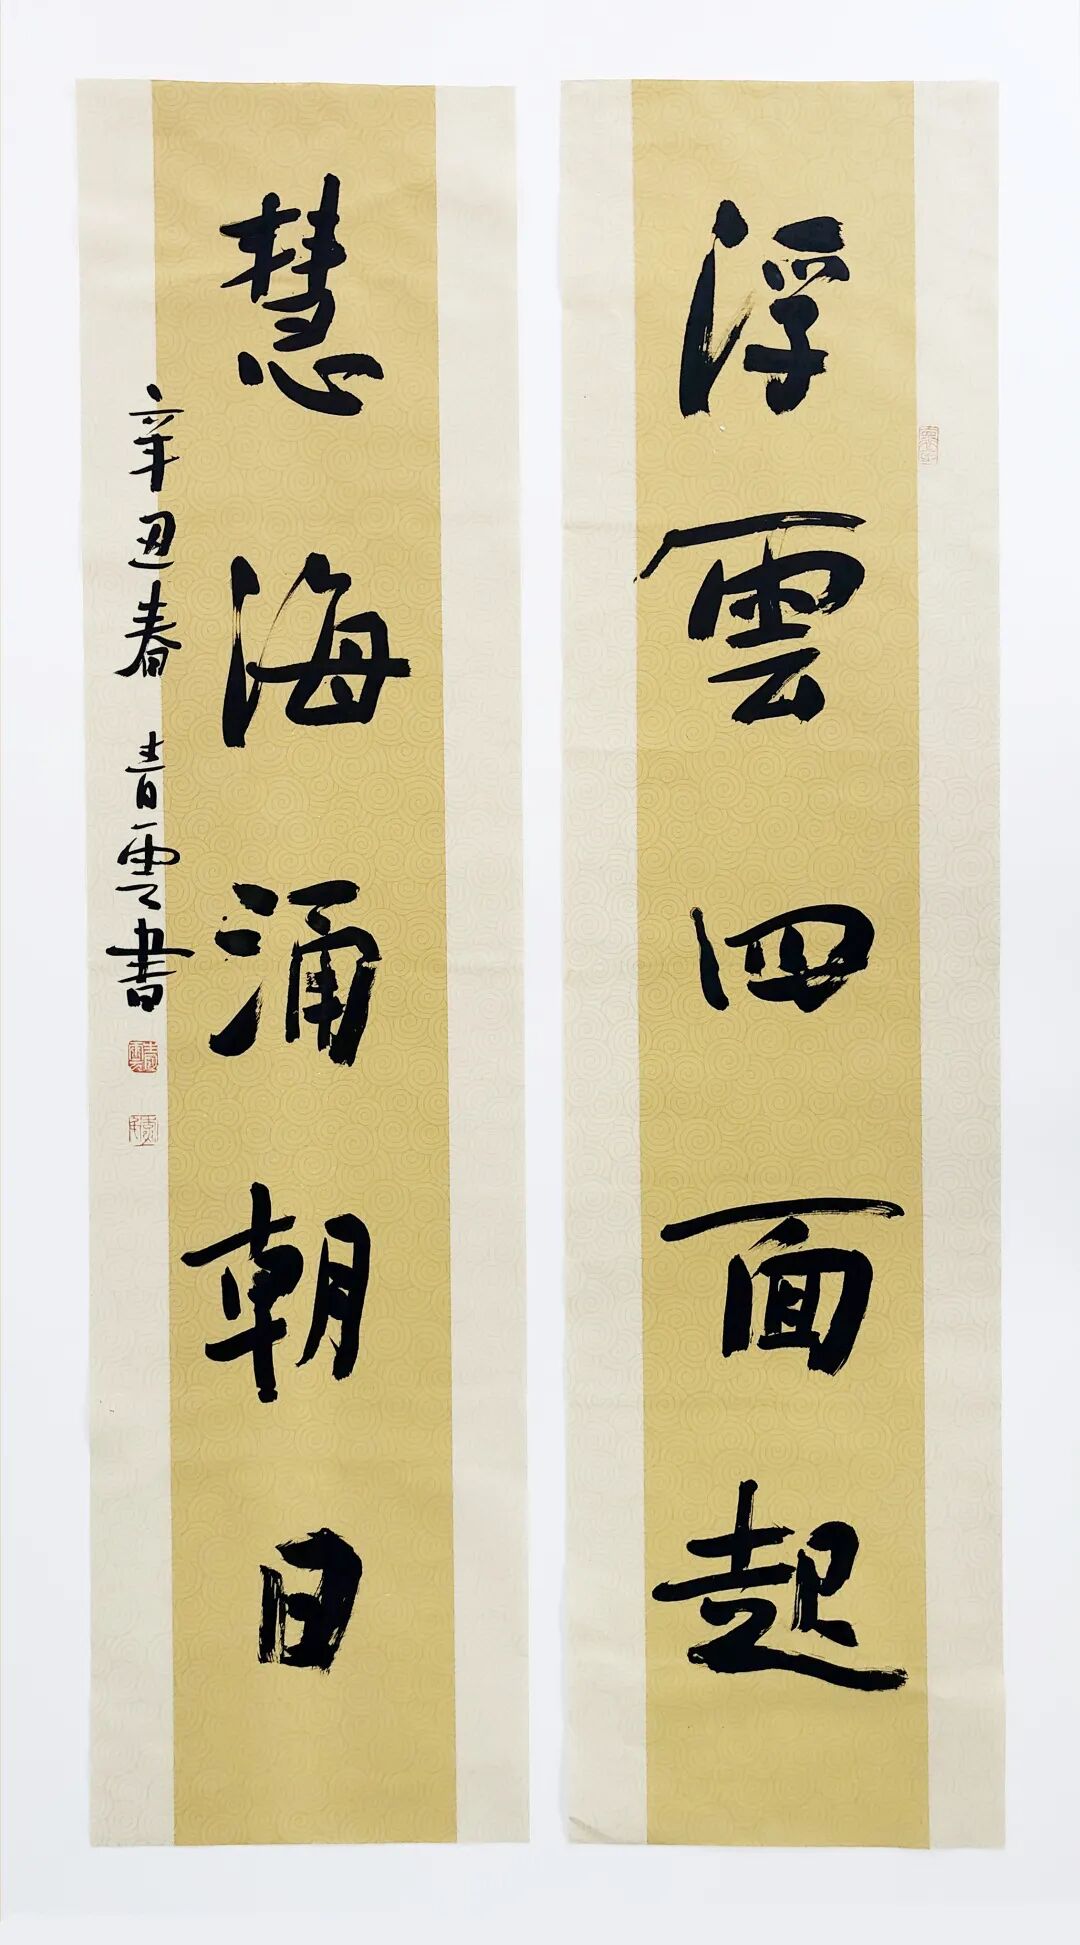 浮雲四面起
慧海涌朝日
辛丑春 青雲書